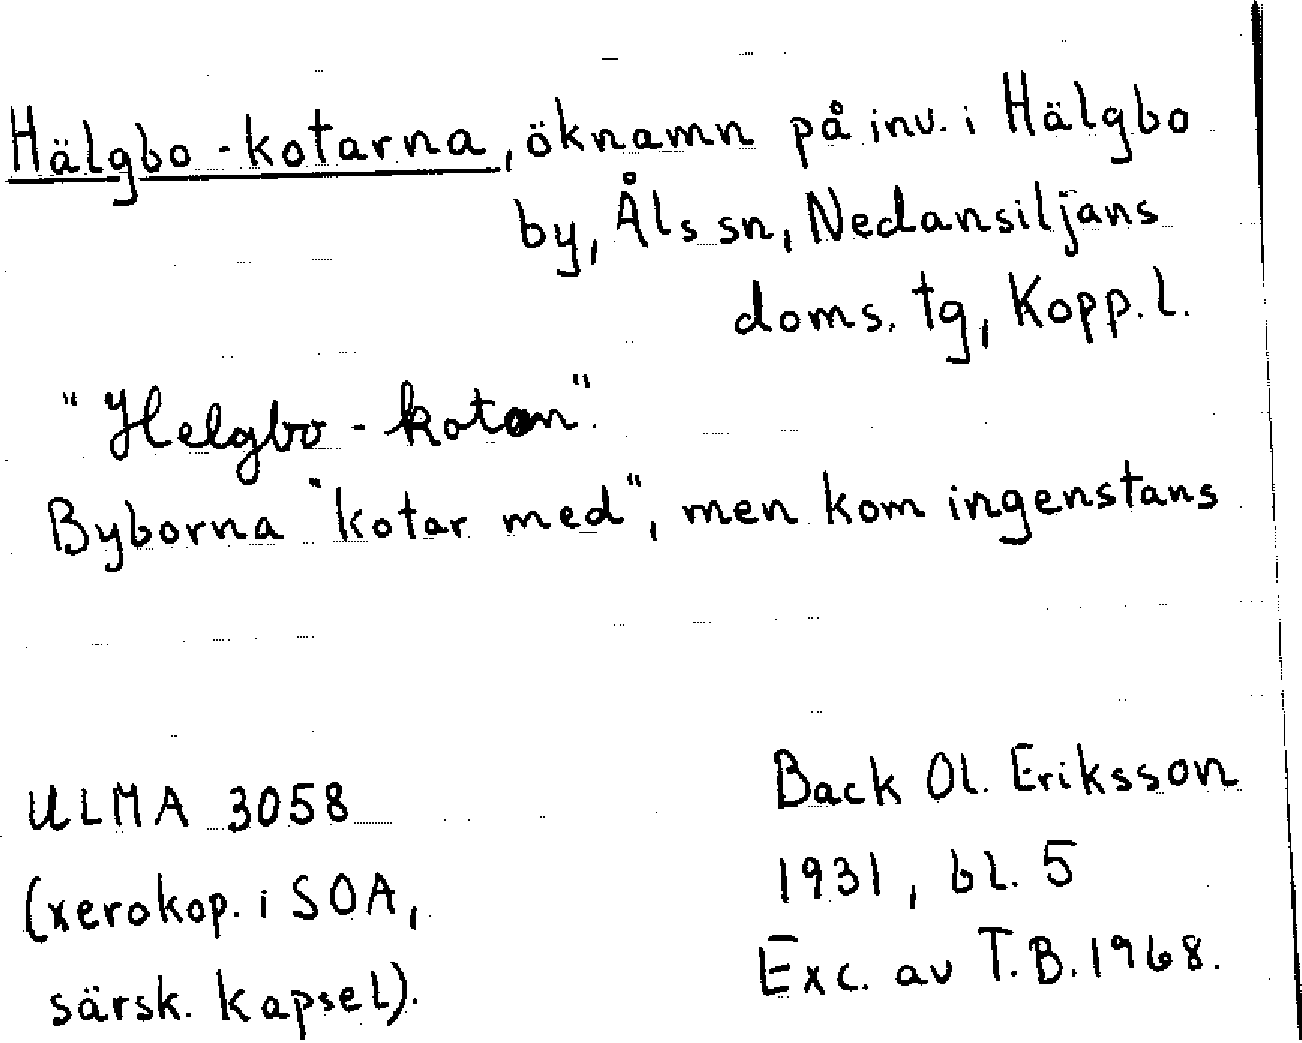 Hälgbo-kotarna, öknamn på inv. i Hälgbo
by, Åls sn, Nedansiljans
doms. tg, Kopp. l.
"Helgbo-kotan".
Byborna "kotar med", men kom ingenstans
ULMA 3058
(xerokop. i SOA,
särsk. kapsel).
Back Ol. Eriksson
1931, bl. 5
Exc. av T.B. 1968.